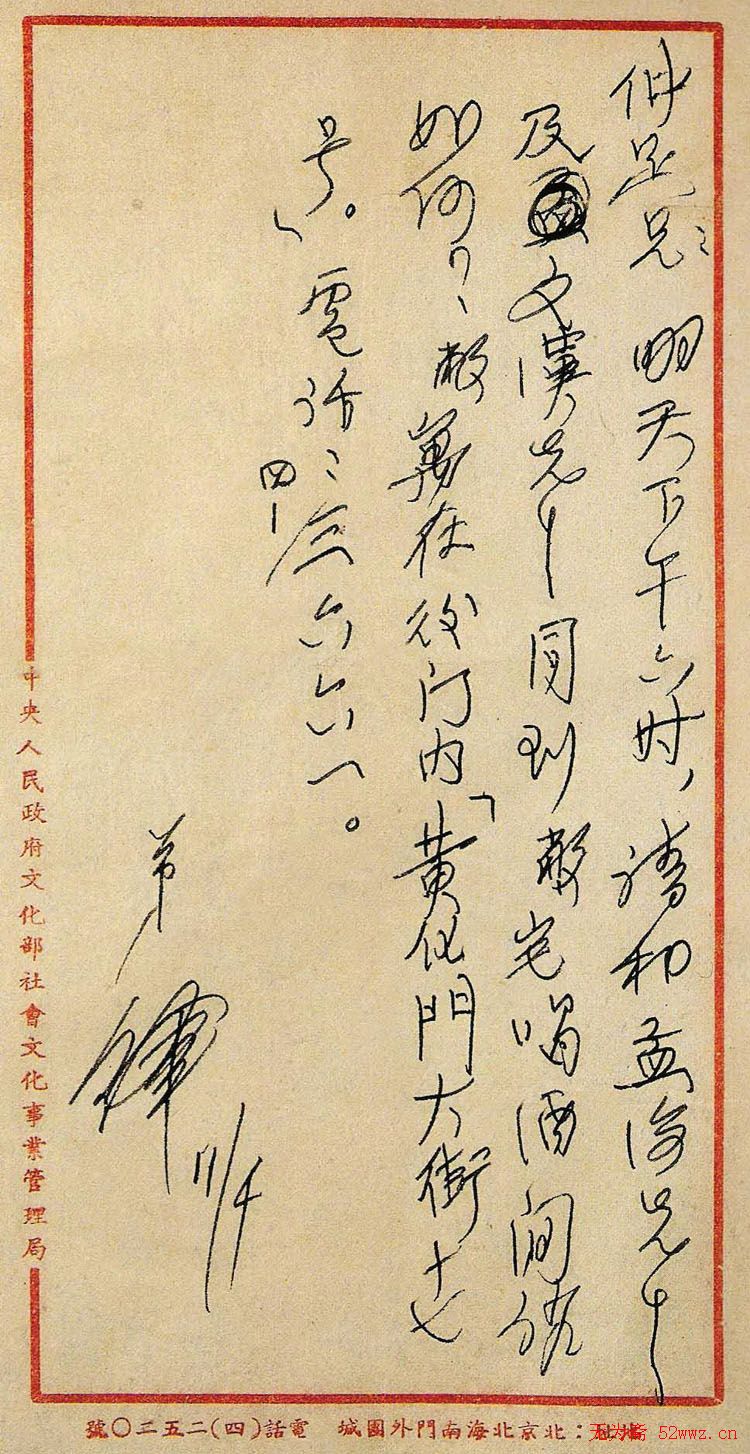 仲足兄：明天下午六时，请和孟海先生
及文漢先生同到敝宅喝酒闲谈
如何？敝寓在後门内「黄化門大街十七
号」。電话：四-三六六一。
弟
鐸
11/4
中央人民政府文化部社會文化事業管理局
：北京北海南門外團城 電話(四)二五三〇號
无为斋 52wwz.cn